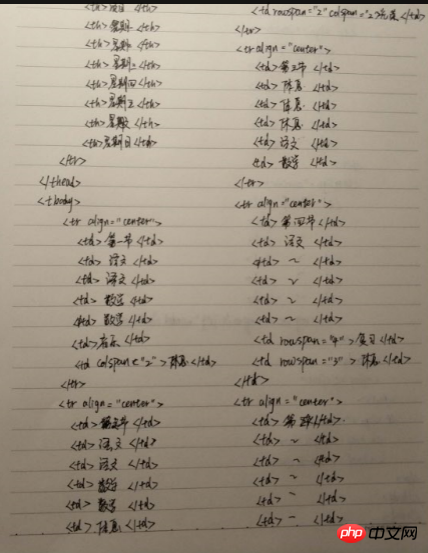 <th> 项目 </th>
<th> 星期一 </th>
<th> 星期二 </th>
<th> 星期三 </th>
<th> 星期四 </th>
<th> 星期五 </th>
<th> 星期六 </th>
<th> 星期日 </td>
</tr>
</thead>
<tbody>
<tr align="center">
<td> 第一节 </td>
<td> 语文 </td>
<td> 语文 </td>
<td> 数学 </td>
<td> 数学 </td>
<td> 音乐 </td>
<td colspan="2"> 休息 </td>
</tr>
<tr align="center">
<td> 第二节 </td>
<td> 语文 </td>
<td> 语文 </td>
<td> 数学 </td>
<td> 数学 </td>
<td> 休息 </td>
<td rowspan="2" colspan="2"> </td>
</tr>
<tr align="center">
<td> 第三节 </td>
<td> 休息 </td>
<td> 休息 </td>
<td> 休息 </td>
<td> 语文 </td>
<td> 数学 </td>
</tr>
<tr align="center">
<td> 第四节 </td>
<td> 语文 </td>
<td> ~ </td>
<td> ~ </td>
<td> ~ </td>
<td> ~ </td>
<td rowspan="4"> 复习 </td>
<td rowspan="3"> 休息 </td>
</td>
<tr align="center">
<td> </td>
<td> ~ </td>
<td> ~ </td>
<td> ~ </td>
<td> ~ </td>
<td> ~ </td>
php 中文网